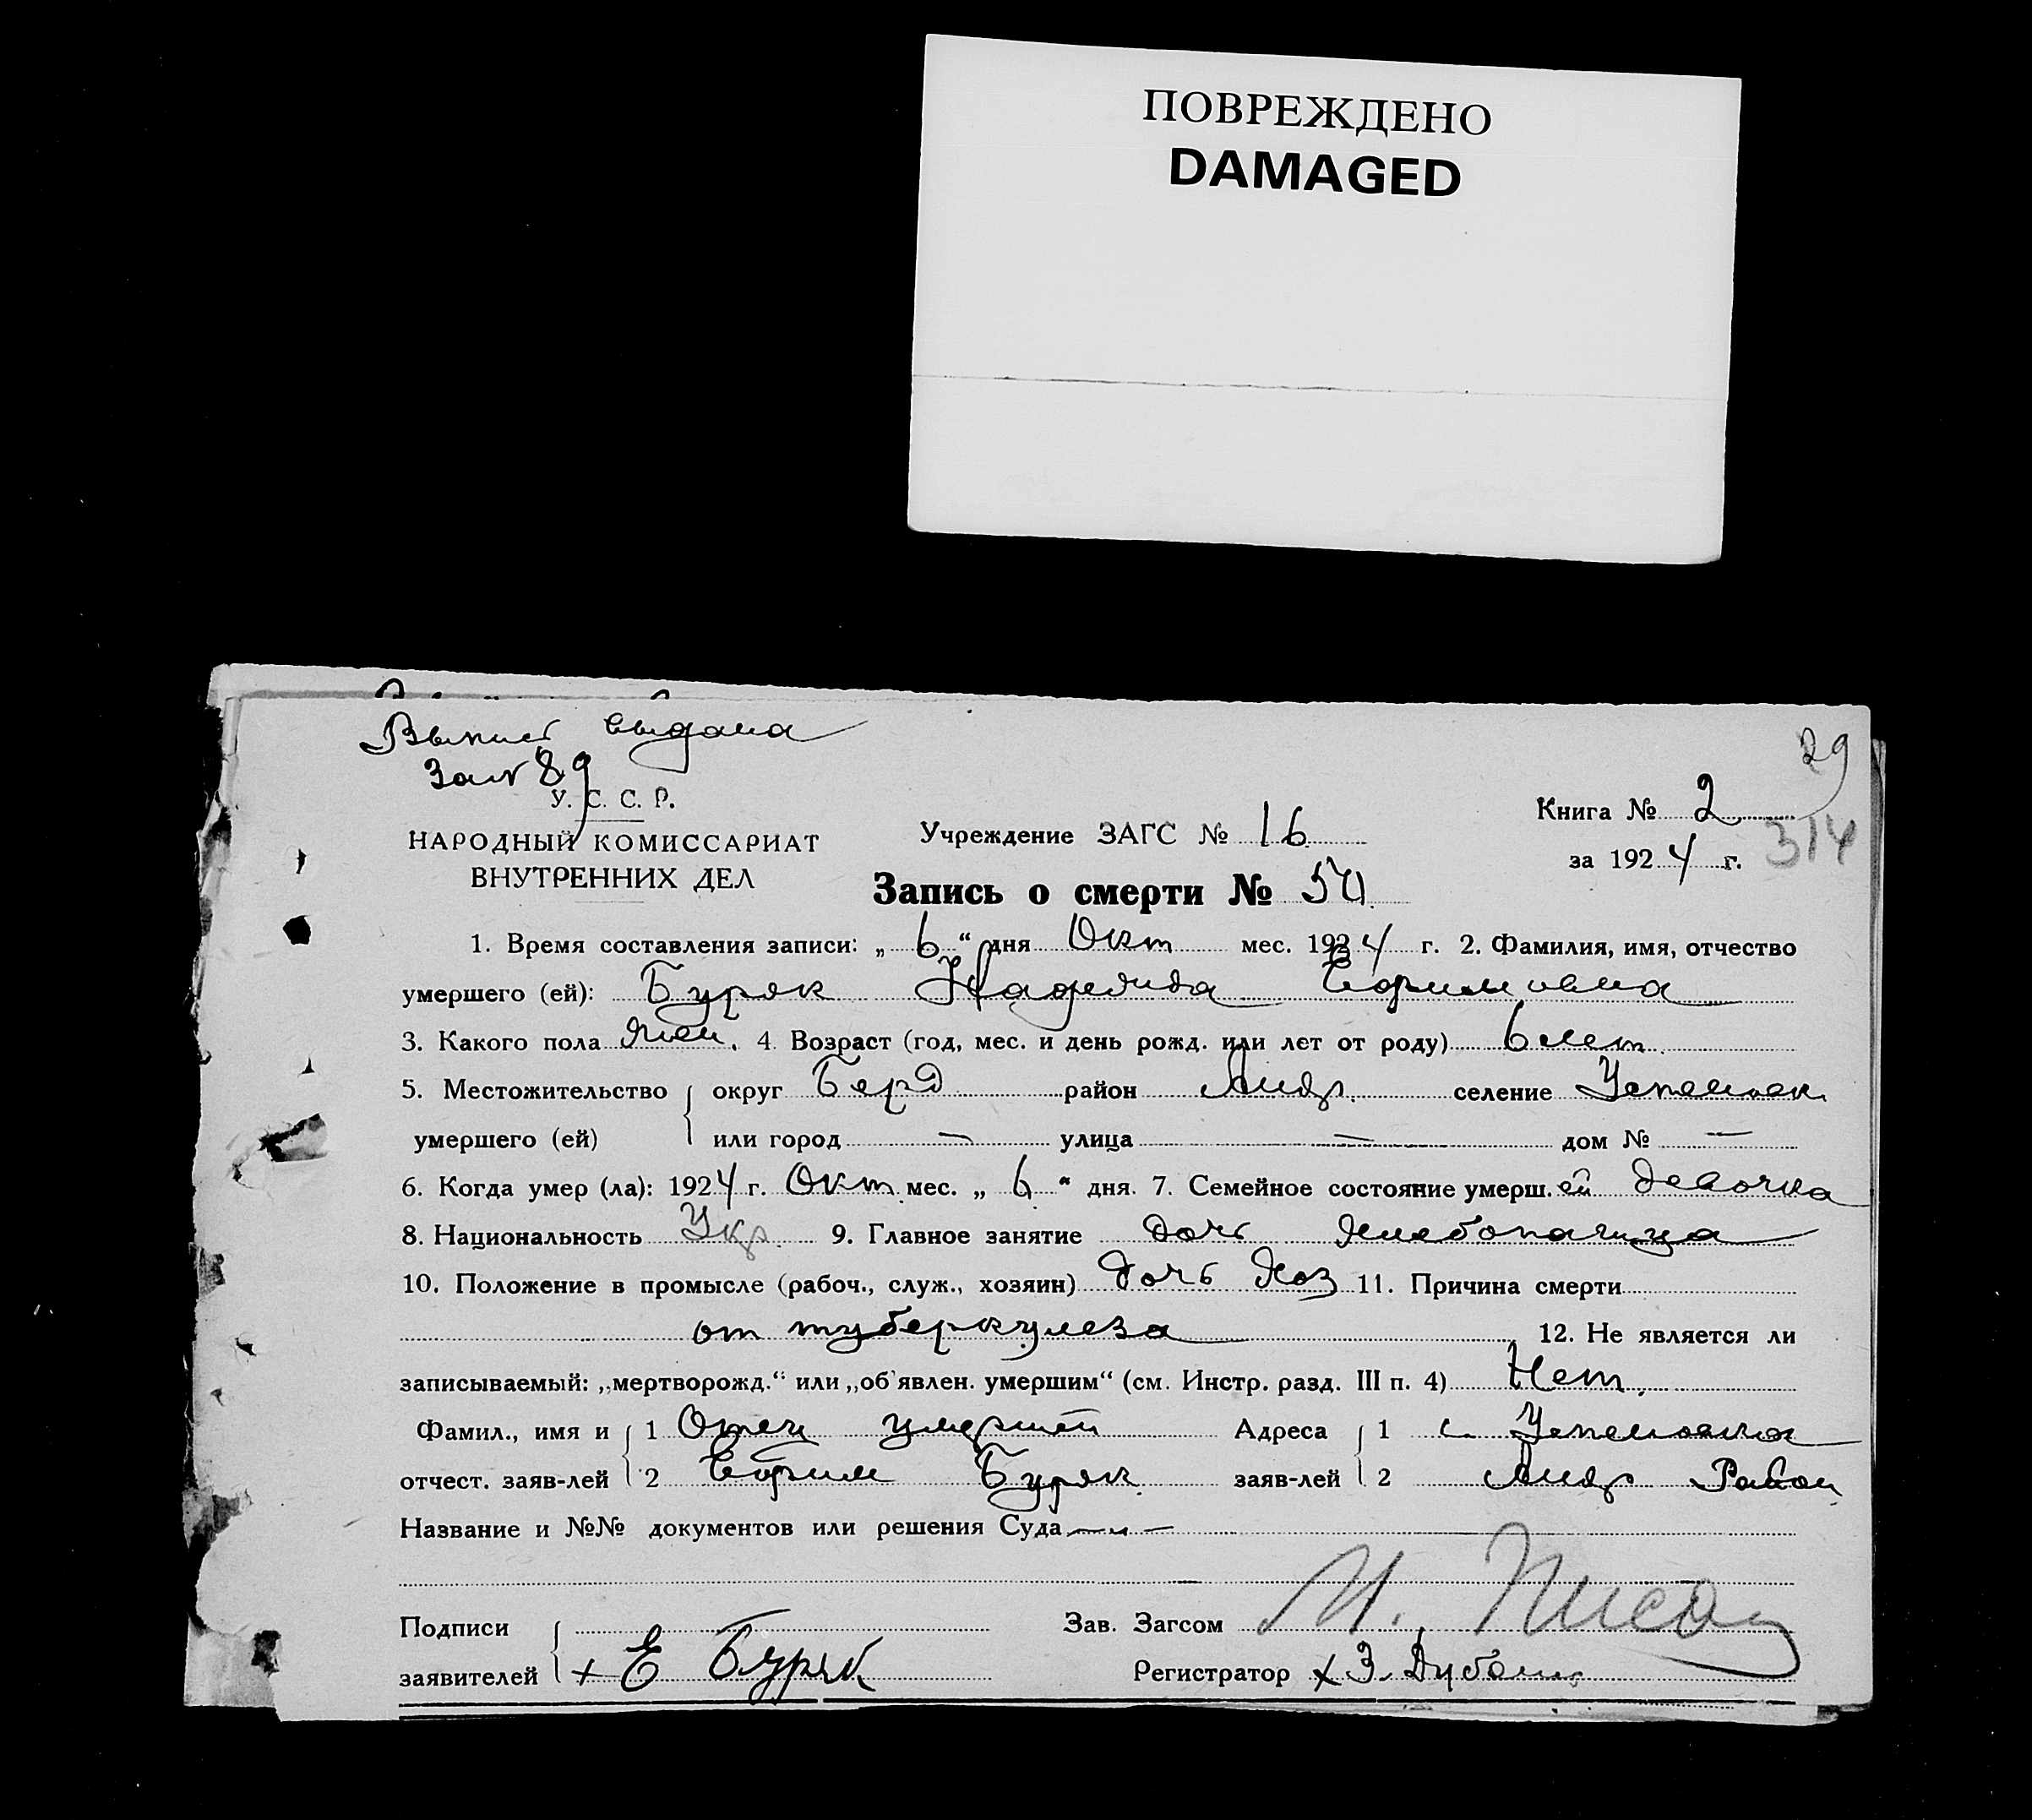 ПОВРЕЖДЕНО
DAMAGED
выдана
89
29
У. С. С. Р.
НАРОДНЫЙ КОМИССАРИАТ
ВНУТРЕННИХ ДЕЛ
Учреждение ЗАГС № 16
Книга № 2
за 1924 г. 314
Запись о смерти №
1. Время составления записи: „ 6 “ дня Окт мес. 1924 г. 2. Фамилия, имя, отчество
умершего (ей): Буряк Надежда Ефимовна
3. Какого пола жен. 4. Возраст (год, мес. и день рожд. или лет от роду) 6 лет
5. Местожительство округ Берд район Андр. селение Успеновк
умершего (ей) или город — улица — дом № —
6. Когда умер (ла): 1924 г. Окт мес. „ 6 “ дня. 7. Семейное состояние умерш. ей девочка
8. Национальность Укр. 9. Главное занятие дочь хлебопашца
10. Положение в промысле (рабоч., служ., хозяин) дочь хоз 11. Причина смерти
от туберкулеза 12. Не является ли
записываемый: „мертворожд.“ или „об'явлен. умершим“ (см. Инстр. разд. III п. 4) Нет.
Фамил., имя и 1 Отец умершей Адреса 1 с. Успеновка
отчест. заяв-лей 2 Ефим Буряк заяв-лей 2 Андр Район
Название и №№ документов или решения Суда
Подписи Зав. Загсом И.
заявителей + Е Буряк Регистратор х З.